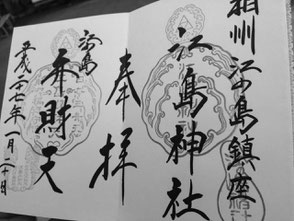 相州江の島鎮座
江島神社
奉拝
江島
弁財天
平成二十七年一月二十日